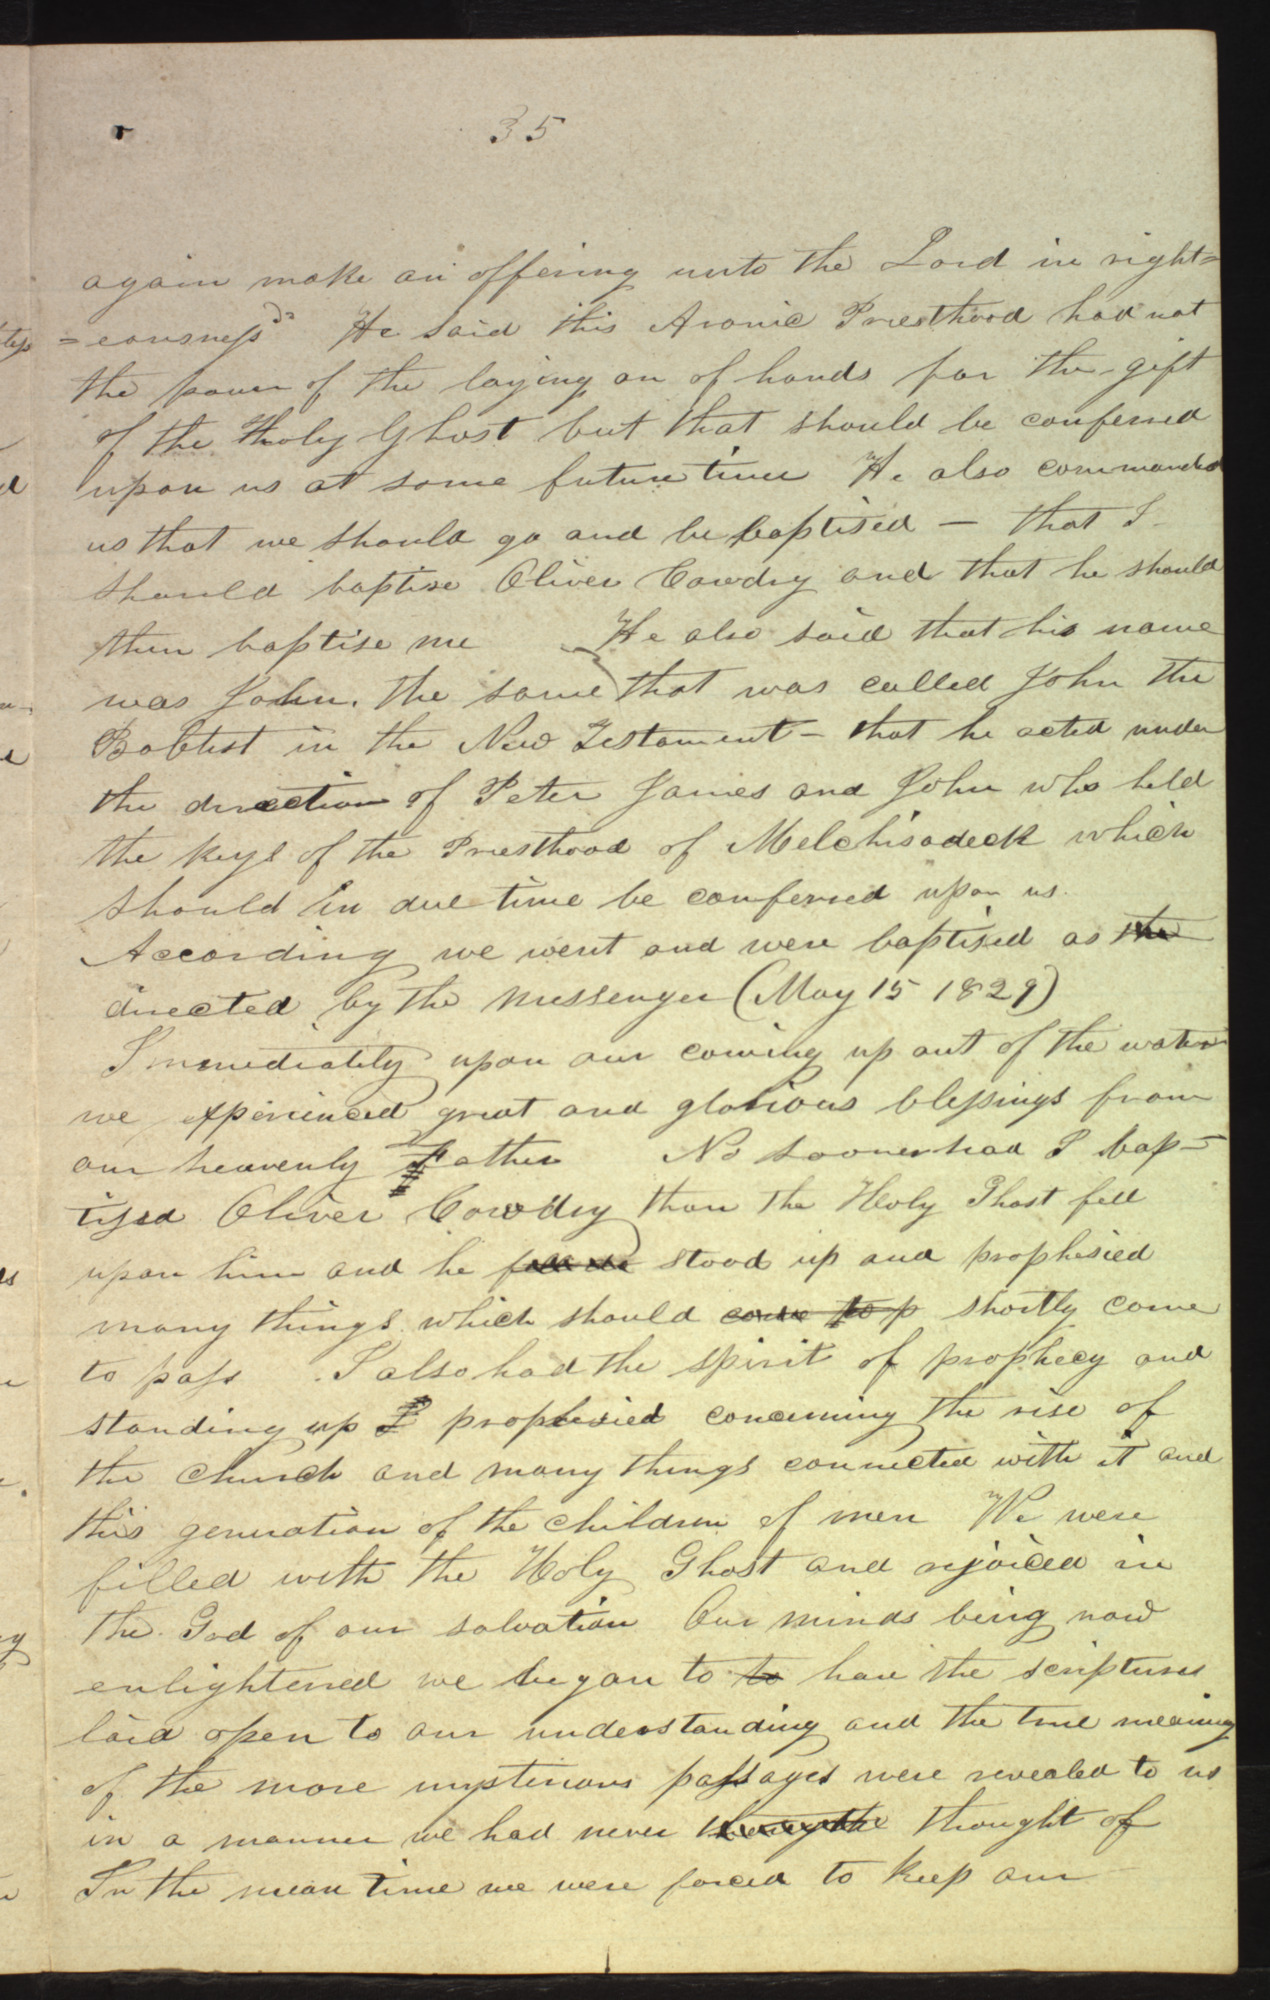 35
again make an offering unto the Lord in right=
=eousness" He said this Aronic Priesthood had not
the power of the laying on of hands for the gift
of the Holy Ghost but that should be conferred
upon us at some future time He also commanded
us that we should go and be baptised — that I
should baptise Oliver Cowdry and that he should
then baptise me He also said that his name
was John. the same that was called John the
Babtist in the New Testament — that he acted under
the direction of Peter James and John who held
the keys of the Priesthood of Melchisadeck which
should in due time be conferred upon us.
According we went and were baptised as the
directed by the messenger (May 15 1829)
Immediatily upon our coming up out of the water
we experienced great and glorious blessings from
our heavenly Father No sooner had I bap=
tised Oliver Cowdry than the Holy Ghost fell
upon him and he stood up and prophesied
many things which should come to p shortly come
to pass. I also had the spirit of prophecy and
standing up I prophesied concerning the rise of
the church and many things connected with it and
this generation of the children of men We were
filled with the Holy Ghost and rejoiced in
the God of our salvation Our minds being now
enlightened we began to to have the scriptures
laid open to our understanding and the true meaning
of the more mysterious passages were revealed to us
in a manner we had never thought of
In the mean time we were forced to keep our